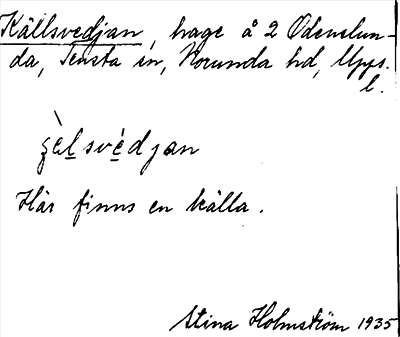 Källsvedjan, hage å 2 Odenslun-
da, Tensta sn, Norunda hd, Upps.
l.
ʒèlsvédjan
Här finns en källa.
Stina Holmström 1935